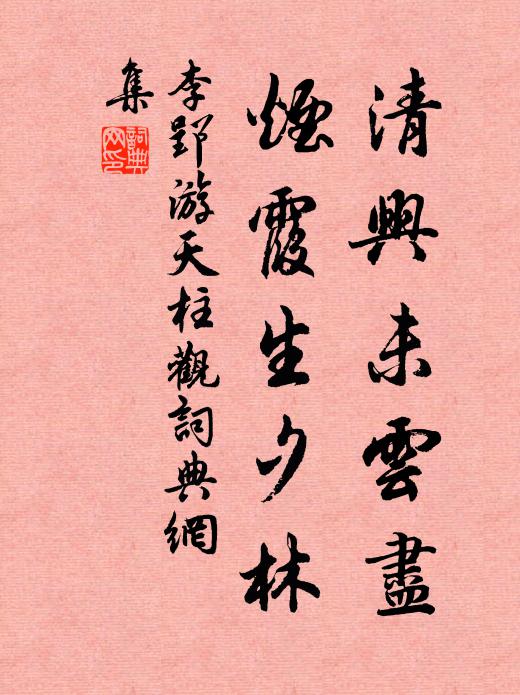 清興未雲盡
煙霞生夕林
李郢游天柱觀詞典網
集
詞典網印